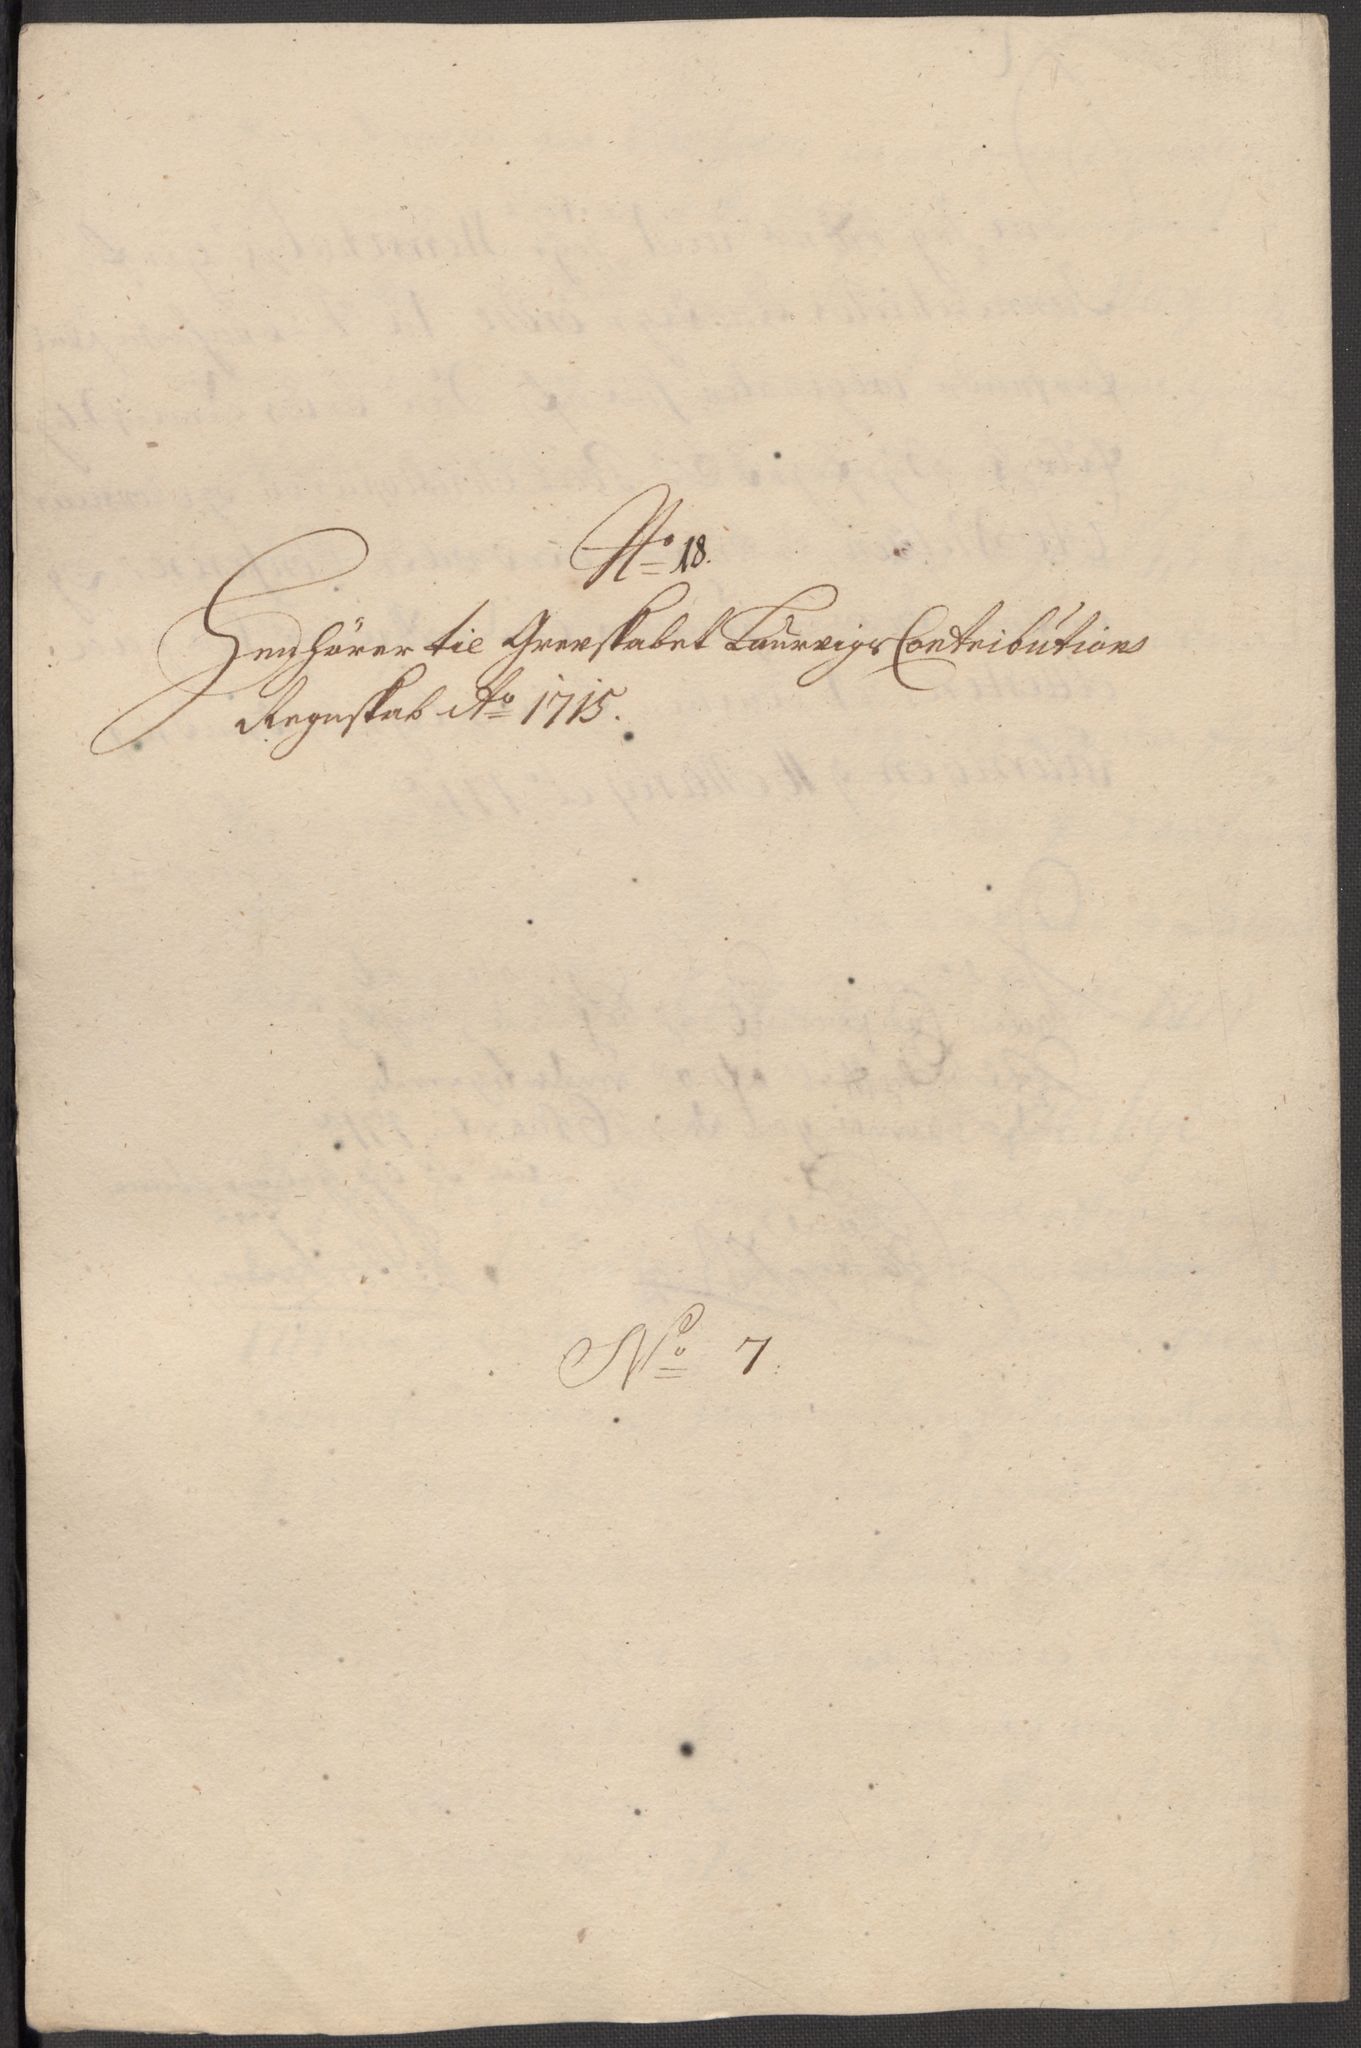 No 18.
Henhörer til Grevskabet Laurvigs Contributions
Regnskab Ao 1715.
No 7.